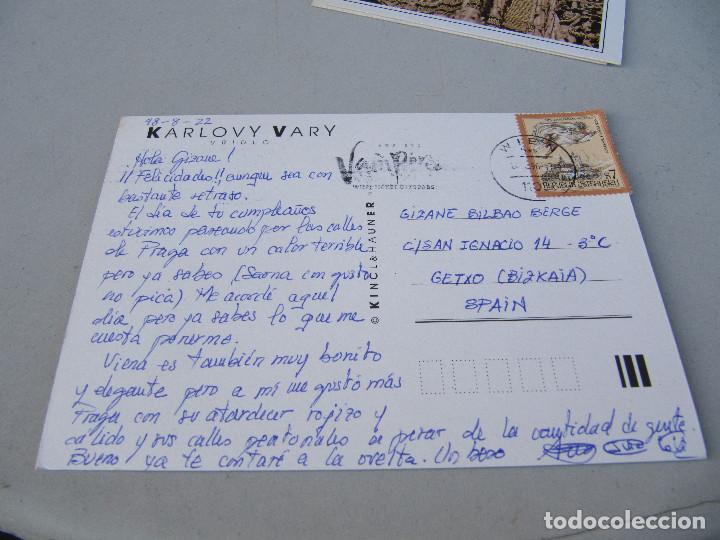 18-8-22
KARLOVY VARY
VŘÍDLO
Hola Gizane!
¡¡Felicidades!! aunque sea con
bastante retraso.
El día de tu cumpleaños
estuvimos paseando por las calles
de Praga con un calor terrible
pero ya sabes (Sarna con gusto
no pica). Me acordé aquel
día, pero ya sabes lo que me
cuesta ponerme.
Viena es también muy bonito
y elegante pero a mí me gustó más
Praga con su atardecer rojizo y
cálido y sus calles peatonales a pesar de la cantidad de gente.
Bueno ya te contaré a la vuelta. Un beso
© KINCL & HAUNER
Vampire
WIEN
REPUBLIK ÖSTERREICH
S7
GIZANE BILBAO BERGE
C/SAN IGNACIO 14 - 3º C
GETXO (BIZKAIA)
SPAIN
todocoleccion
todocoleccion.net